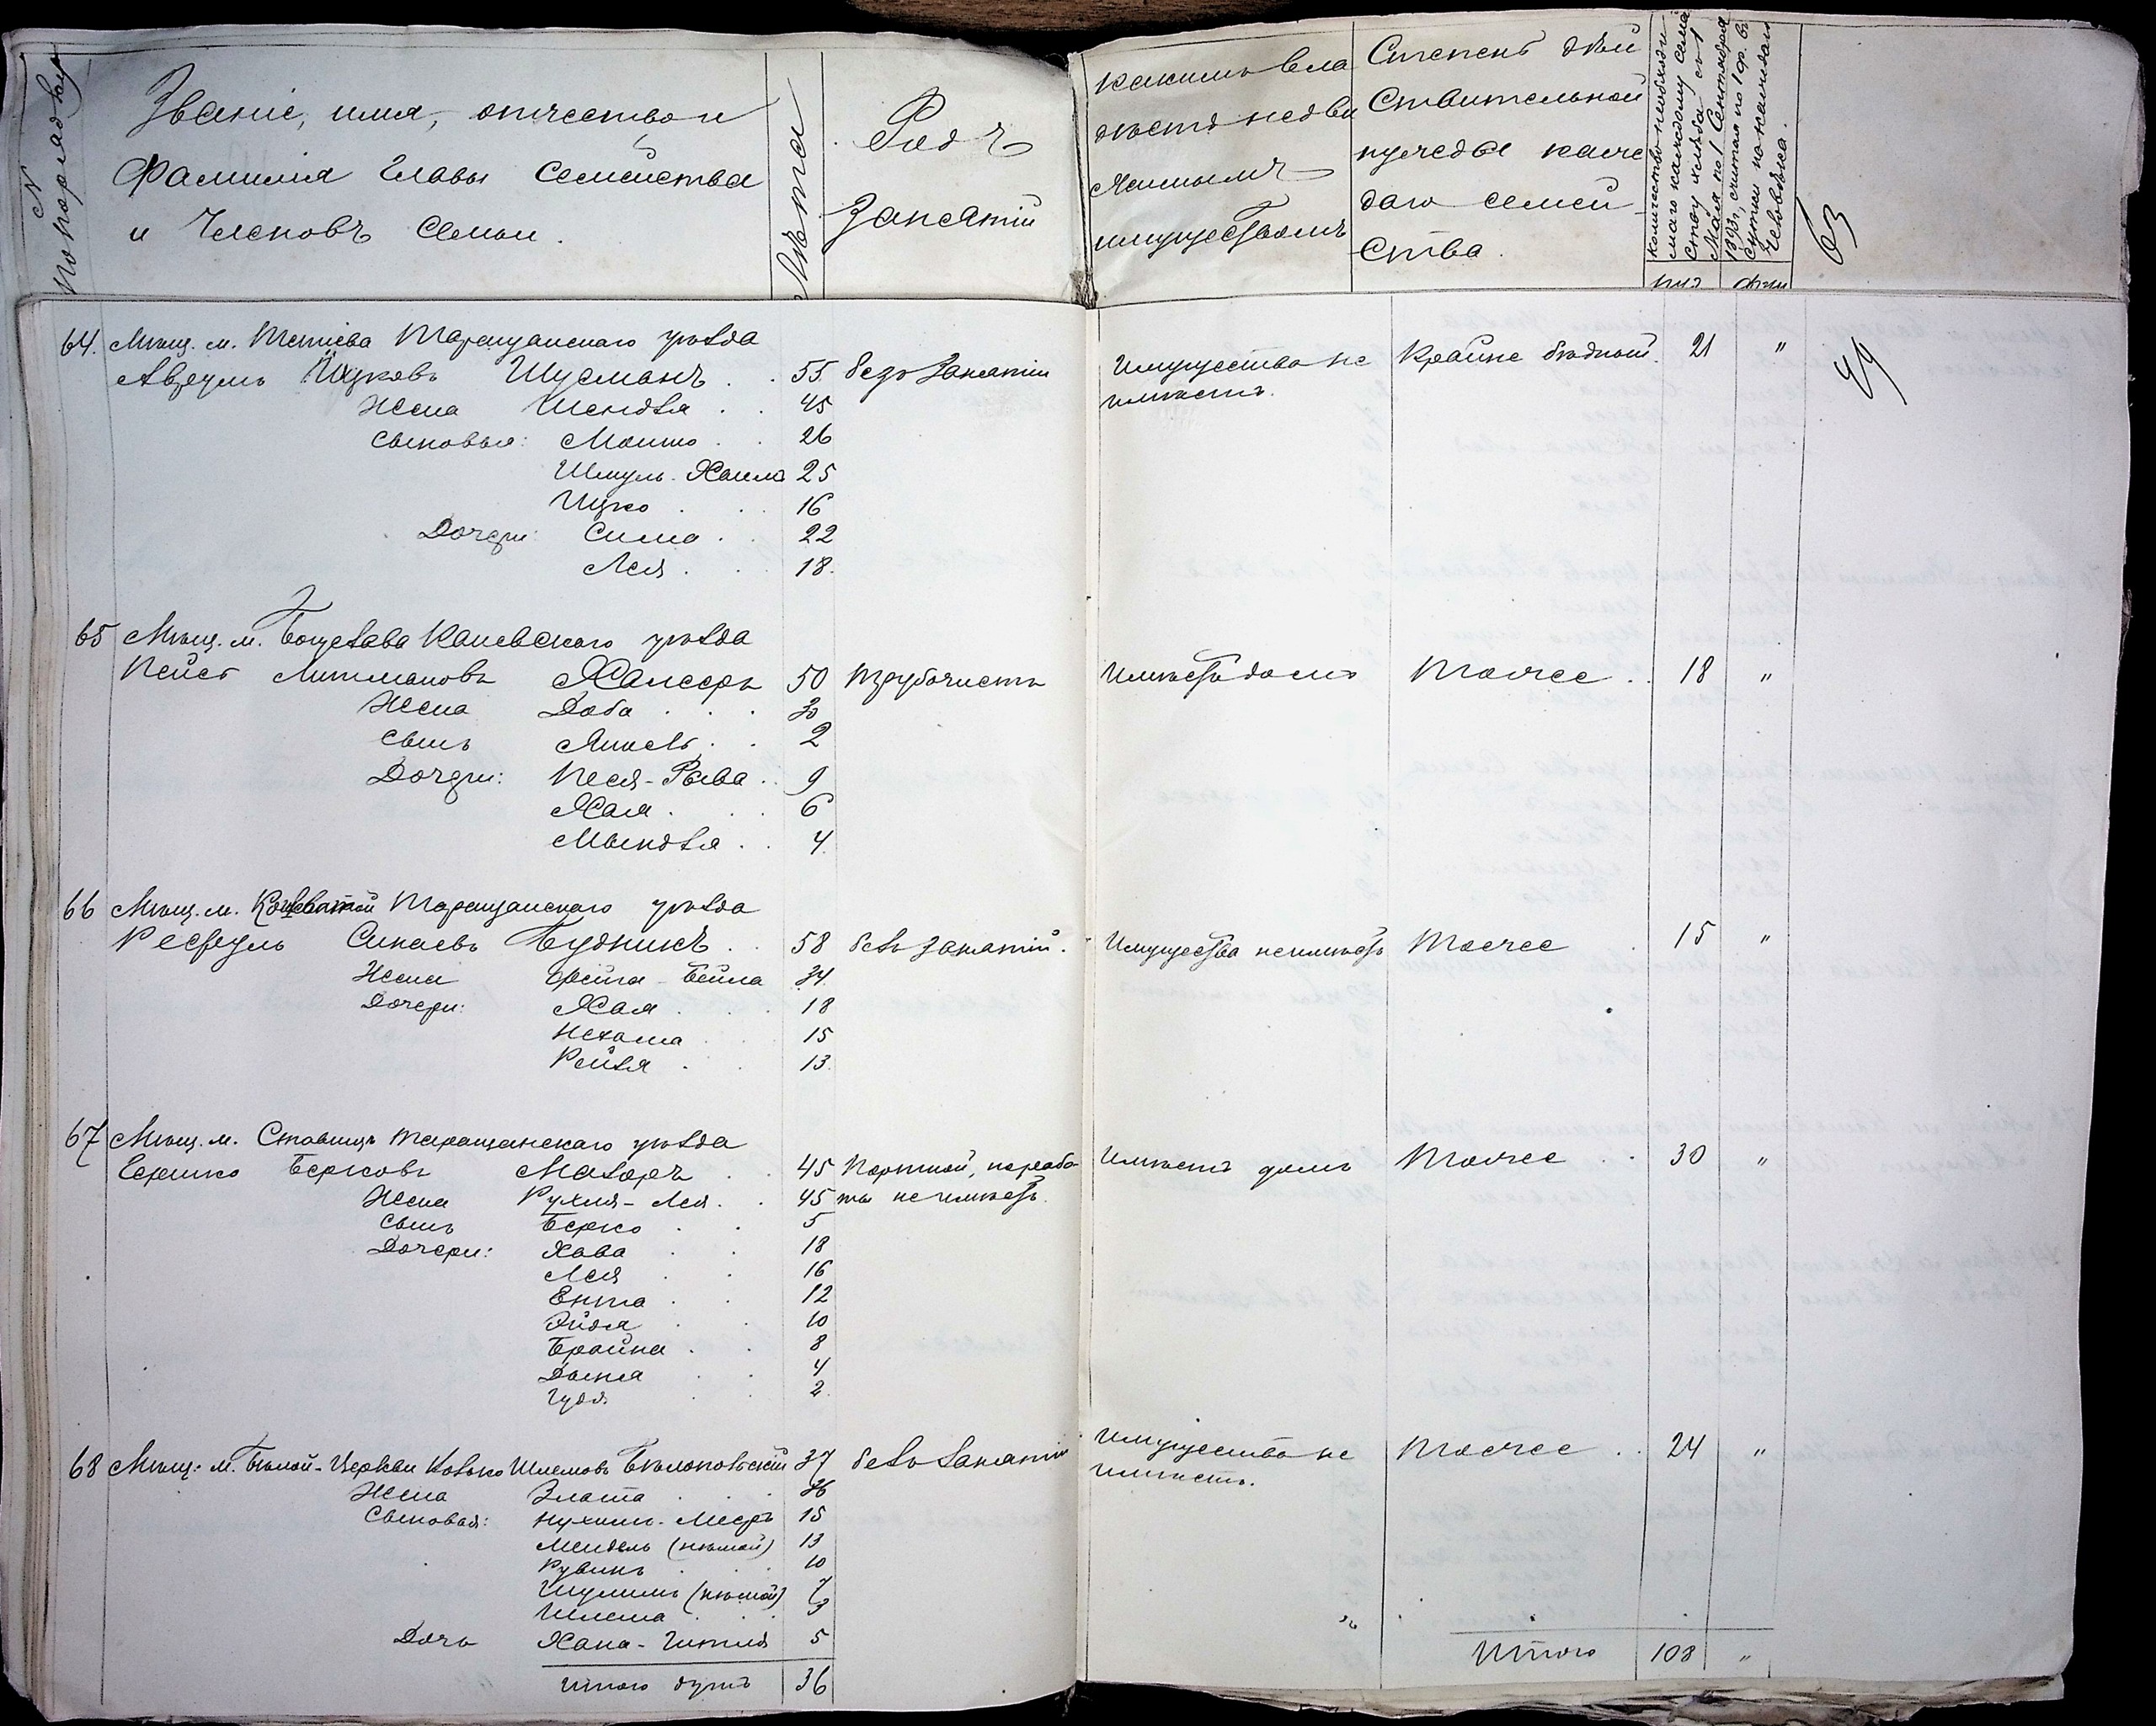 N по порядку
Званіе, имя, отчество и
Фамилія Главы Семейства
и Членовъ Семьи.
Лѣта
Родъ
Занятій
какимъ вла
дѣетъ недви
жимымъ
имуществомъ
Степень дѣй
ствительной
нужды каж
даго семей
ства.
количество необходи
маго каждому семей
ству хлѣба съ 1
Мая по 1 Сентября
1893 г., считая по 1 ф. въ
сутки на каждаго
человѣка.
пуд фун
63
49
64. Мѣщ. м. Тетіева Таращанскаго уѣзда
Аврумъ Ицковъ Шусманъ . . 55 безъ занятій Имущества не Крайне бѣдный. 21 "
имѣетъ.
Жена Шендля . . 45
Сыновья: Мошко . . 26
Шмуль-Хаимъ 25
Ицко . . 16
Дочери: Сима . . 22
Лея . . 18.
65 Мѣщ. м. Богуслава Каневскаго уѣзда
Пейсъ Литмановъ 50 трубочистъ Имѣетъ домъ Тоже . . 18 "
Жена Доба . . .
Сынъ Янкель . . 2
Дочери: Песя-Рыва . . 9
Хая . . 6
Мындля . . 4
66 Мѣщ. м. Кошеватой Таращанскаго уѣзда
Синаевъ Будникъ . . 58 безъ занятій. Имущества неимѣетъ Тоже . 15 "
Жена Фейга-Бейла 34
Дочери: Хая . . 18
Нехама . 15
Рейзя . . 13.
67 Мѣщ. м. Ставищъ Таращанскаго уѣзда
Гершко Берковъ Мазоръ . 45 Портной, но рабо Имѣетъ домъ Тоже . . 30 "
Жена Рухля-Лея . . 45 ты не имѣетъ.
Сынъ Берко . . 5
Дочери: Хава . . 18
Лея . . 16
Ента . . 12
Эйдя . . 10
Брайна . . 8
Двыня . . 4
Гудя . . 2.
68 Мѣщ: м. Бѣлой-Церкви Шлемовъ Бѣлопольскій 37 безъ занятій Имущества не Тоже . . 24 "
имѣетъ.
Жена Злата . . . 36
Сыновья: Нухимъ-Мееръ 15
Мендель (нѣмой) 13
Рувинъ . . . 10
Шулимъ (нѣмой) 7
Шлема . . . 3
Дочь Хана-Гитля 5
Итого душъ 36
Итого 108 "